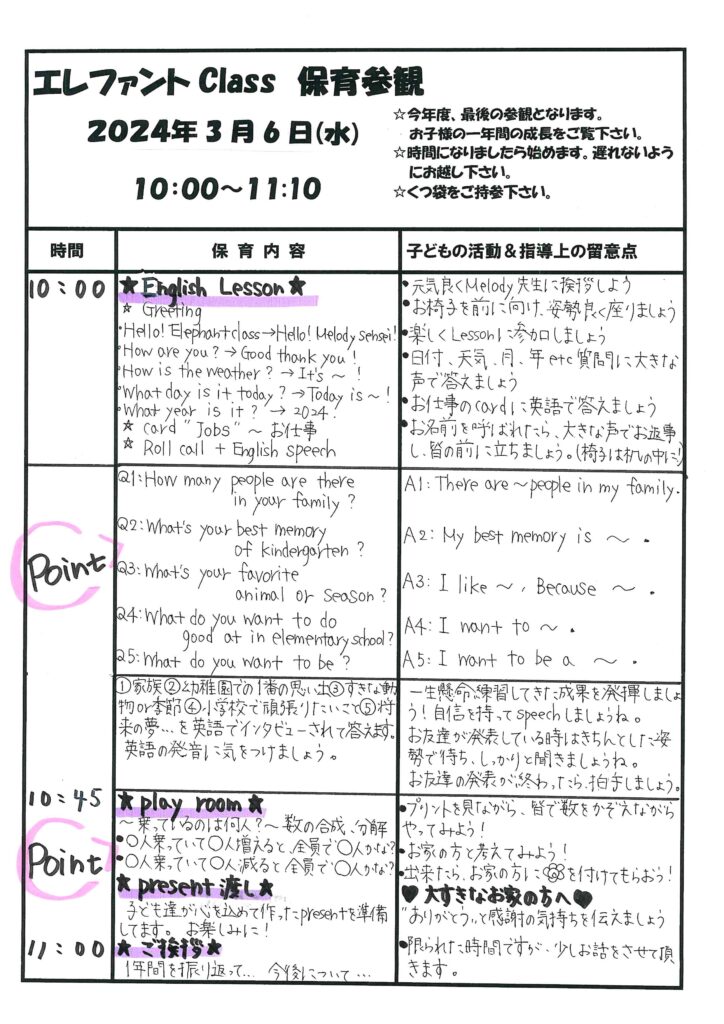 エレファント Class 保育参観
2024年3月6日(水)
10:00～11:10
☆今年度、最後の参観となります。
お子様の一年間の成長をご覧下さい。
☆時間になりましたら始めます。遅れないよう
にお越し下さい。
☆くつ袋をご持参下さい。
時間
保育内容
子どもの活動＆指導上の留意点
10:00
★English Lesson★
☆ Greeting
・Hello! Elephant class→Hello! Melody sensei!
・How are you? → Good thank you!
・How is the weather? → It's ～ !
・What day is it today? →Today is ～!
・What year is it? → 2024!
★ card "Jobs" ～ お仕事
★ Roll call + English speech
・元気良くMelody先生に挨拶しよう
・お椅子を前に向け、姿勢良く座りましょう
・楽しくLessonに参加しましょう
・日付、天気、月、年etc質問に大きな
声で答えましょう
・お仕事のcardに英語で答えましょう
・お名前を呼ばれたら、大きな声でお返事
し、皆の前に立ちましょう。(椅子は机の中に!)
Point
Q1:How many people are there
in your family?
Q2:What's your best memory
of kindergarten?
Q3:What's your favorite
animal or season?
Q4:What do you want to do
good at in elementary school?
Q5:What do you want to be?
A1: There are ～people in my family.
A2: My best memory is ～ .
A3: I like ～, Because ～ .
A4: I want to ～ .
A5: I want to be a ～ .
①家族②幼稚園での1番の思い出③すきな動
物or季節④小学校で頑張りたいこと⑤将
来の夢…を英語でインタビューされて答えます。
英語の発音に気をつけましょう。
一生懸命、練習してきた成果を発揮しましょ
う!自信を持ってspeechしましょうね。
お友達が発表している時はきちんとした姿
勢で待ち、しっかりと聞きましょうね。
お友達の発表が終わったら、拍手しましょう。
10:45
★play room★
～乗っているのは何人?～ 数の合成、分解
・〇人乗っていて〇人増えると、全員で〇人かな?
・〇人乗っていて〇人減ると、全員で〇人かな?
・プリントを見ながら、皆で数をかぞえながら
やってみよう!
・お家の方と考えてみよう!
・出来たら、お家の方に を付けてもらおう!
Point
★present渡し★
子ども達が心を込めて作ったpresentを準備
してます。お楽しみに!
♥ 大すきなお家の方へ♥
"ありがとう"、と感謝の気持ちを伝えましょう
11:00
★ご挨拶★
1年間を振り返って… 今後について…
・限られた時間ですが、少しお話をさせて頂
きます。